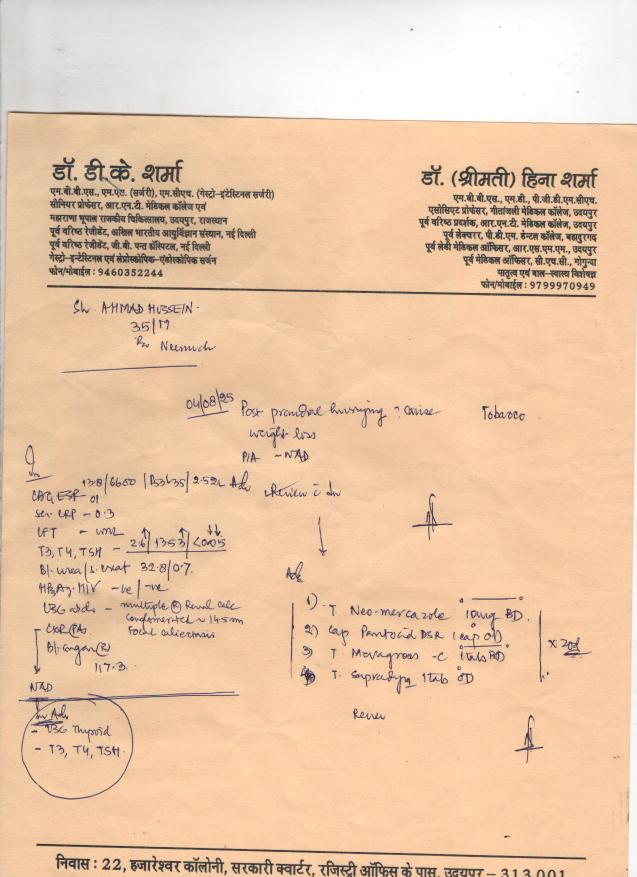 डॉ. डी.के. शर्मा
एम.बी.बी.एस., एम.एस. (सर्जरी), एम.सीएच. (गेस्ट्रो-इंटेस्टिनल सर्जरी)
सीनियर प्रोफेसर, आर.एन.टी. मेडिकल कॉलेज एवं
महाराणा भूपाल राजकीय चिकित्सालय, उदयपुर, राजस्थान
पूर्व वरिष्ठ रेजीडेंट, अखिल भारतीय आयुर्विज्ञान संस्थान, नई दिल्ली
पूर्व वरिष्ठ रेजीडेंट, जी.बी. पन्त हॉस्पिटल, नई दिल्ली
गेस्ट्रो-इन्टेस्टिनल एवं लेप्रोस्कोपिक-एंडोस्कोपिक सर्जन
फोन/मोबाईल : 9460352244
डॉ. (श्रीमती) हिना शर्मा
एम.बी.बी.एस., एम.डी., पी.जी.डी.एम.सीएच.
एसोसिएट प्रोफेसर, गीतांजली मेडिकल कॉलेज, उदयपुर
पूर्व वरिष्ठ प्रदर्शक, आर.एन.टी. मेडिकल कॉलेज, उदयपुर
पूर्व लेक्चरर, पी.डी.एम. डेन्टल कॉलेज, बहादुरगढ़
पूर्व लेडी मेडिकल ऑफिसर, आर.एस.एम.एम., उदयपुर
पूर्व मेडिकल ऑफिसर, सी.एच.सी., गोगुन्दा
मातृत्व एवं बाल-स्वास्थ्य विशेषज्ञ
फोन/मोबाईल : 9799970949
Sh. AHMAD HUSSEIN
35/M
Neemuch
04/08/25 Post prandial hurrying ? cause Tobacco
weight loss
P/A - NAD
13.8/6600
CBC ESR - 01
Ser. CRP - 0.3
LFT - WNL
T3, T4, TSH - 2.6/13.53/<0.05
Bl. urea/S. creat 32.8/0.7
HBsAg. HIV -ve/-ve
USG abdo - multiple (R) Renal calc
conglomerated ~ 14.5mm
Focal caliectasis
CXR (PA)
Bl. sugar (R)
117.3
NAD
Adv
Review
Adv
1) T Neo-mercazole 10mg BD
2) Cap Pantocid DSR 1cap OD
3) T. -C 1tab BD
4) T. Supradyn 1tab OD
x 20d
Review
Adv
- USG Thyroid
- T3, T4, TSH
निवास : 22, हजारेश्वर कॉलोनी, सरकारी क्वार्टर, रजिस्ट्री ऑफिस के पास, उदयपुर - 313 001